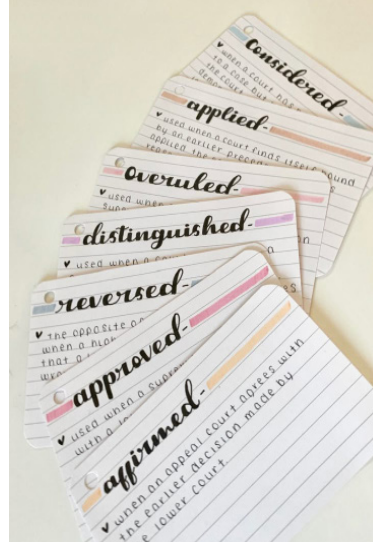 Considered-
♥ when a court has
to a case but
the court
applied-
♥ used when a court finds itself bound
by an earlier prece
applied the
overuled-
♥ used when
distinguished-
♥ used when a cou
reversed-
♥ the opposite o
when a hig
that a l
wro
approved-
♥ used when a supre
with a lo
affirmed-
♥ when an appeal court agrees with
the earlier decision made by
e lower court.